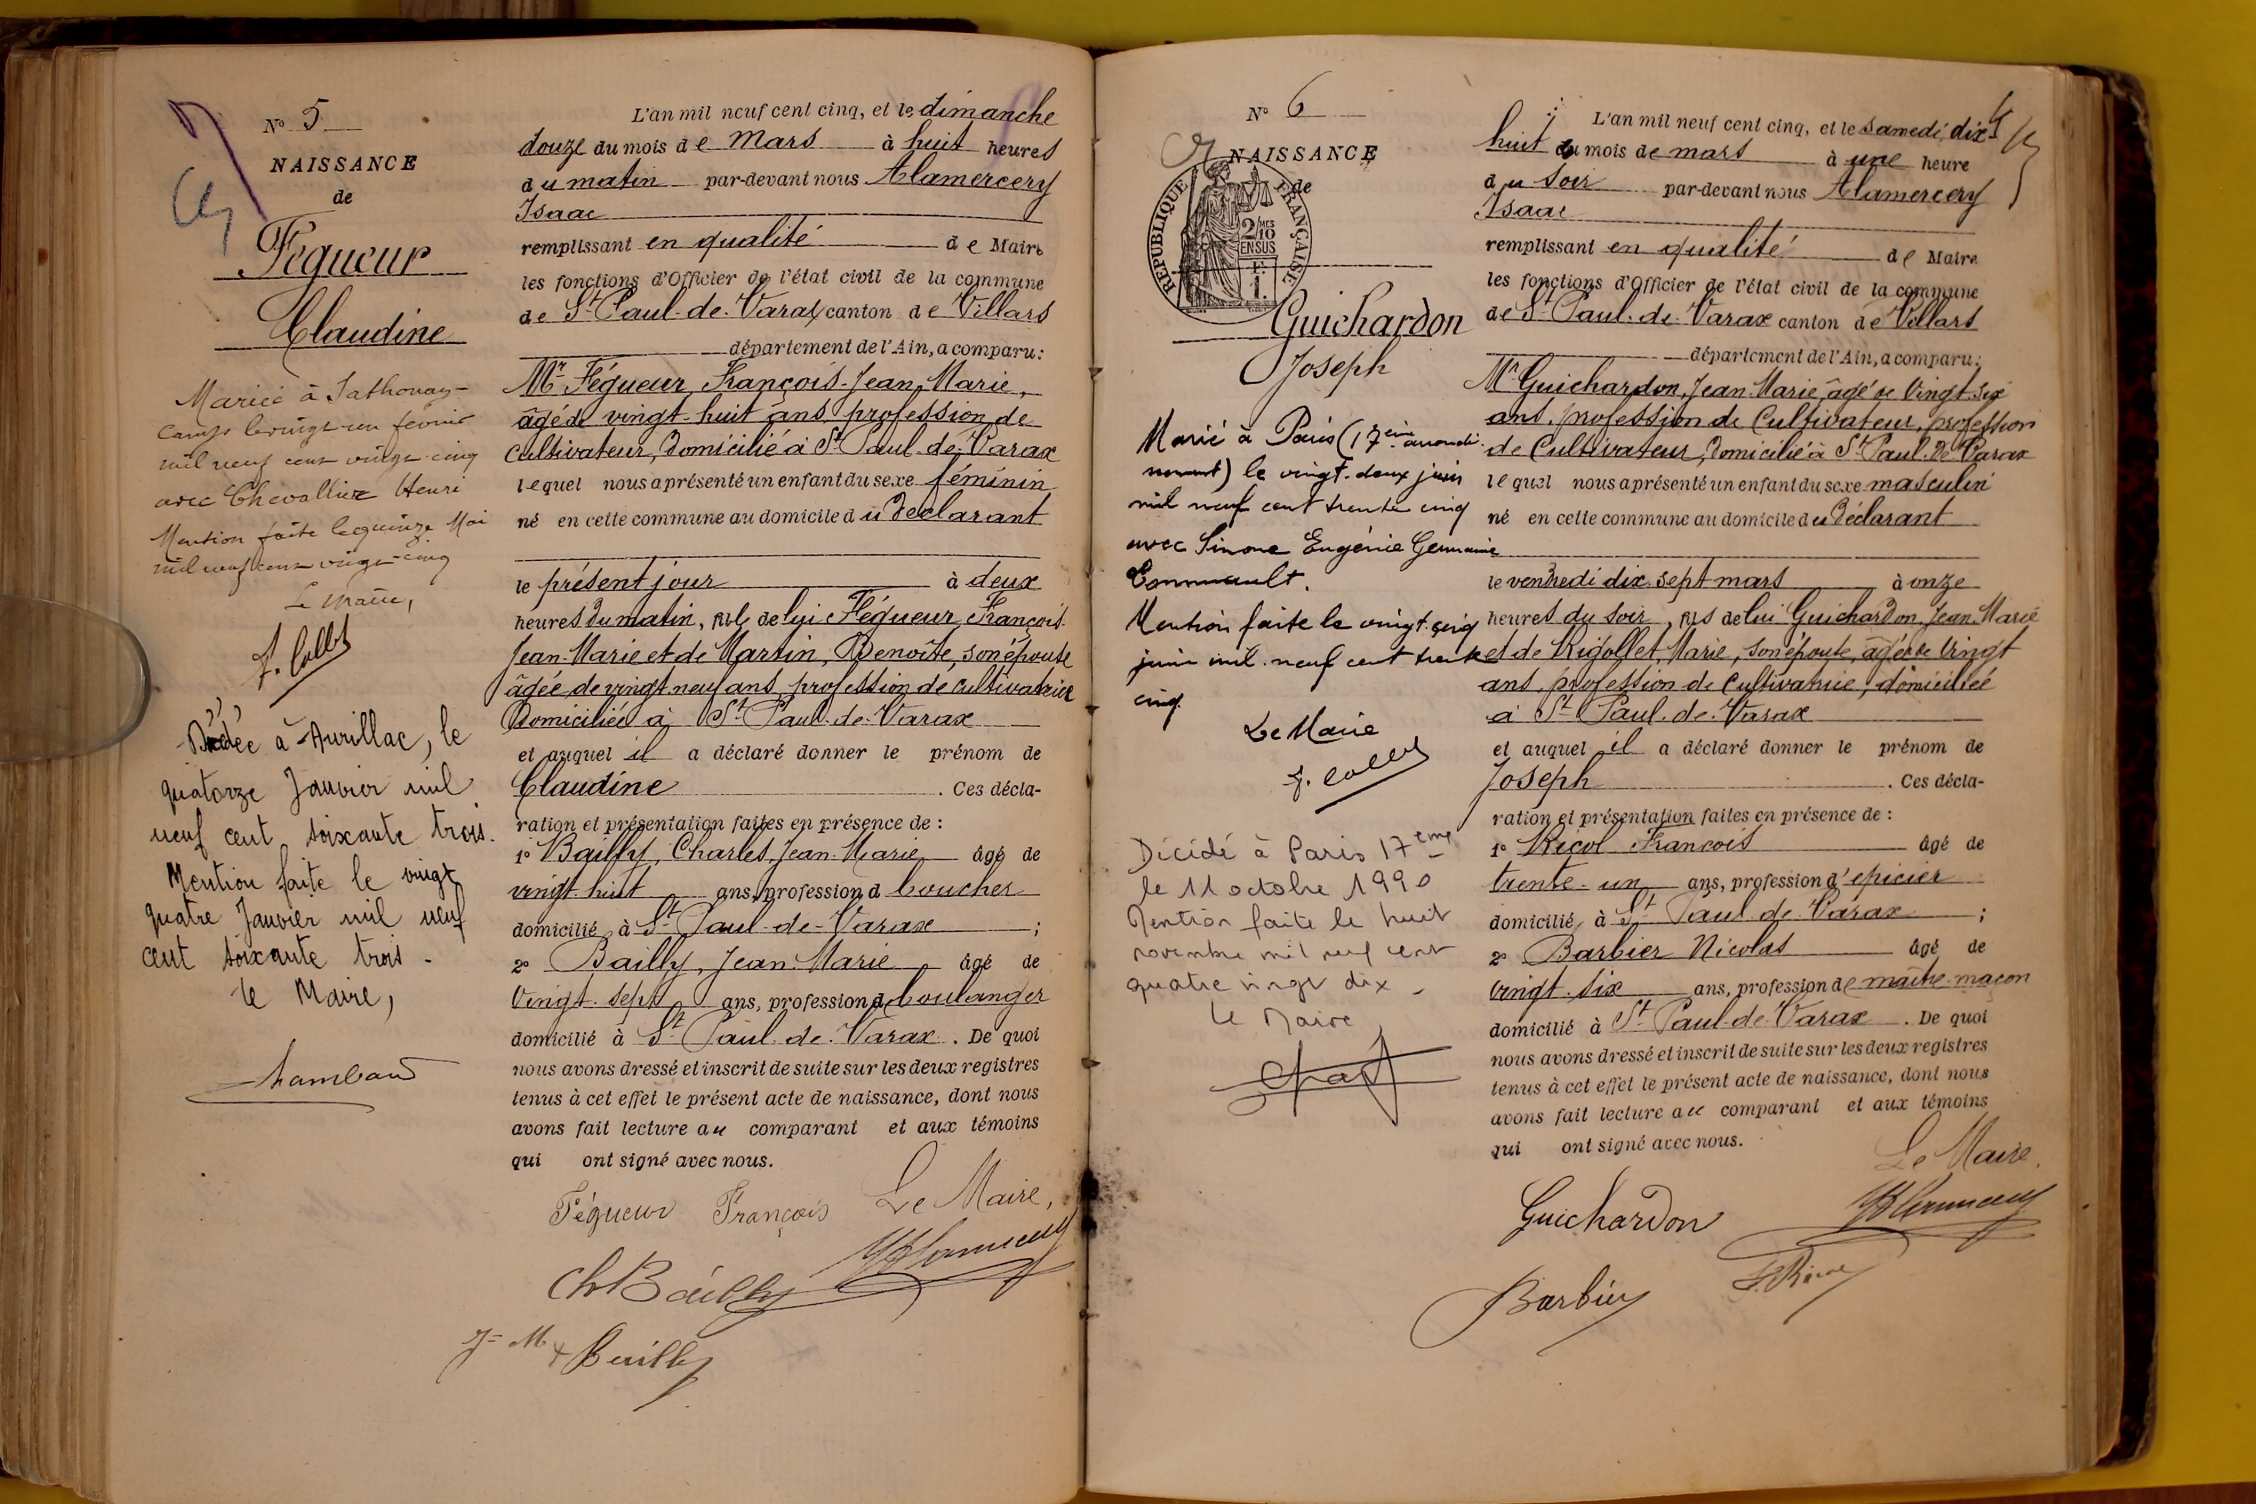 N° 5
NAISSANCE
de
Fégueur
Claudine
Mariée à Sathonay-
Camp le vingt-un février
mil neuf cent vingt-cinq
avec Chevallier Henri
Mention faite le quinze Mai
mil neuf cent vingt-cinq
Le Maire,
Décédée à Aurillac, le
quatorze Janvier mil
neuf cent soixante trois.
Mention faite le vingt
quatre Janvier mil neuf
cent soixante trois.
Le Maire,
L'an mil neuf cent cinq, et le dimanche
douze du mois de Mars à huit heures
du matin par-devant nous Alamercery
Isaac
remplissant en qualité de Maire
les fonctions d'Officier de l'état civil de la commune
de St Paul-de-Varax canton de Villars
département de l'Ain, a comparu:
Mr Fégueur, François-Jean-Marie,
âgé de vingt-huit ans, profession de
cultivateur, domicilié à St Paul-de-Varax
lequel nous a présenté un enfant du sexe féminin
né en cette commune au domicile du déclarant
le présent jour à deux
heures du matin, fille de lui Fégueur, François-
Jean-Marie et de Martin, Benoîte, son épouse
âgée de vingt neuf ans, profession de cultivatrice
domiciliée à St Paul-de-Varax
et auquel il a déclaré donner le prénom de
Claudine. Ces décla-
ration et présentation faites en présence de :
1° Bailly, Charles, Jean-Marie âgé de
vingt-huit ans, profession d boucher
domicilié à St Paul-de-Varax ;
2° Bailly, Jean-Marie âgé de
vingt-sept ans, profession d boulanger
domicilié à St Paul-de-Varax. De quoi
nous avons dressé et inscrit de suite sur les deux registres
tenus à cet effet le présent acte de naissance, dont nous
avons fait lecture au comparant et aux témoins
qui ont signé avec nous.
Fégueur François Le Maire,
Ch Bailly
J-M Bailly
N° 6
NAISSANCE
de
REPUBLIQUE FRANÇAISE
2/10 MES
EN SUS
Guichardon
Joseph
Marié à Paris (17ème arrondis-
sement) le vingt-deux juin
mil neuf cent trente cinq
avec Simone Eugénie Germaine
Mention faite le vingt-cinq
juin mil neuf cent trente
cinq.
Le Maire
Décédé à Paris 17ème
le 11 octobre 1990
Mention faite le huit
novembre mil neuf cent
quatre vingt dix -
Le Maire
L'an mil neuf cent cinq, et le samedi dix-
huit du mois de mars à une heure
du soir par-devant nous Alamercery
Isaac
remplissant en qualité de Maire
les fonctions d'Officier de l'état civil de la commune
de St Paul-de-Varax canton de Villars
département de l'Ain, a comparu:
Mr Guichardon, Jean-Marie, âgé de vingt-six
ans, profession de Cultivateur, profession
de Cultivateur, domicilié à St Paul-de-Varax
lequel nous a présenté un enfant du sexe masculin
né en cette commune au domicile du déclarant
le vendredi dix-sept mars à onze
heures du soir, fils de lui Guichardon, Jean-Marie
et de Rigollet, Marie, son épouse, âgée de vingt
ans, profession de Cultivatrice, domiciliée
à St Paul-de-Varax
et auquel il a déclaré donner le prénom de
Joseph. Ces décla-
ration et présentation faites en présence de :
1° Ricol François âgé de
trente-un ans, profession d'épicier
domicilié à St Paul-de-Varax ;
2° Barbier Nicolas âgé de
vingt-six ans, profession de maître-maçon
domicilié à St Paul-de-Varax. De quoi
nous avons dressé et inscrit de suite sur les deux registres
tenus à cet effet le présent acte de naissance, dont nous
avons fait lecture au comparant et aux témoins
qui ont signé avec nous.
Le Maire.
Guichardon
Barbier